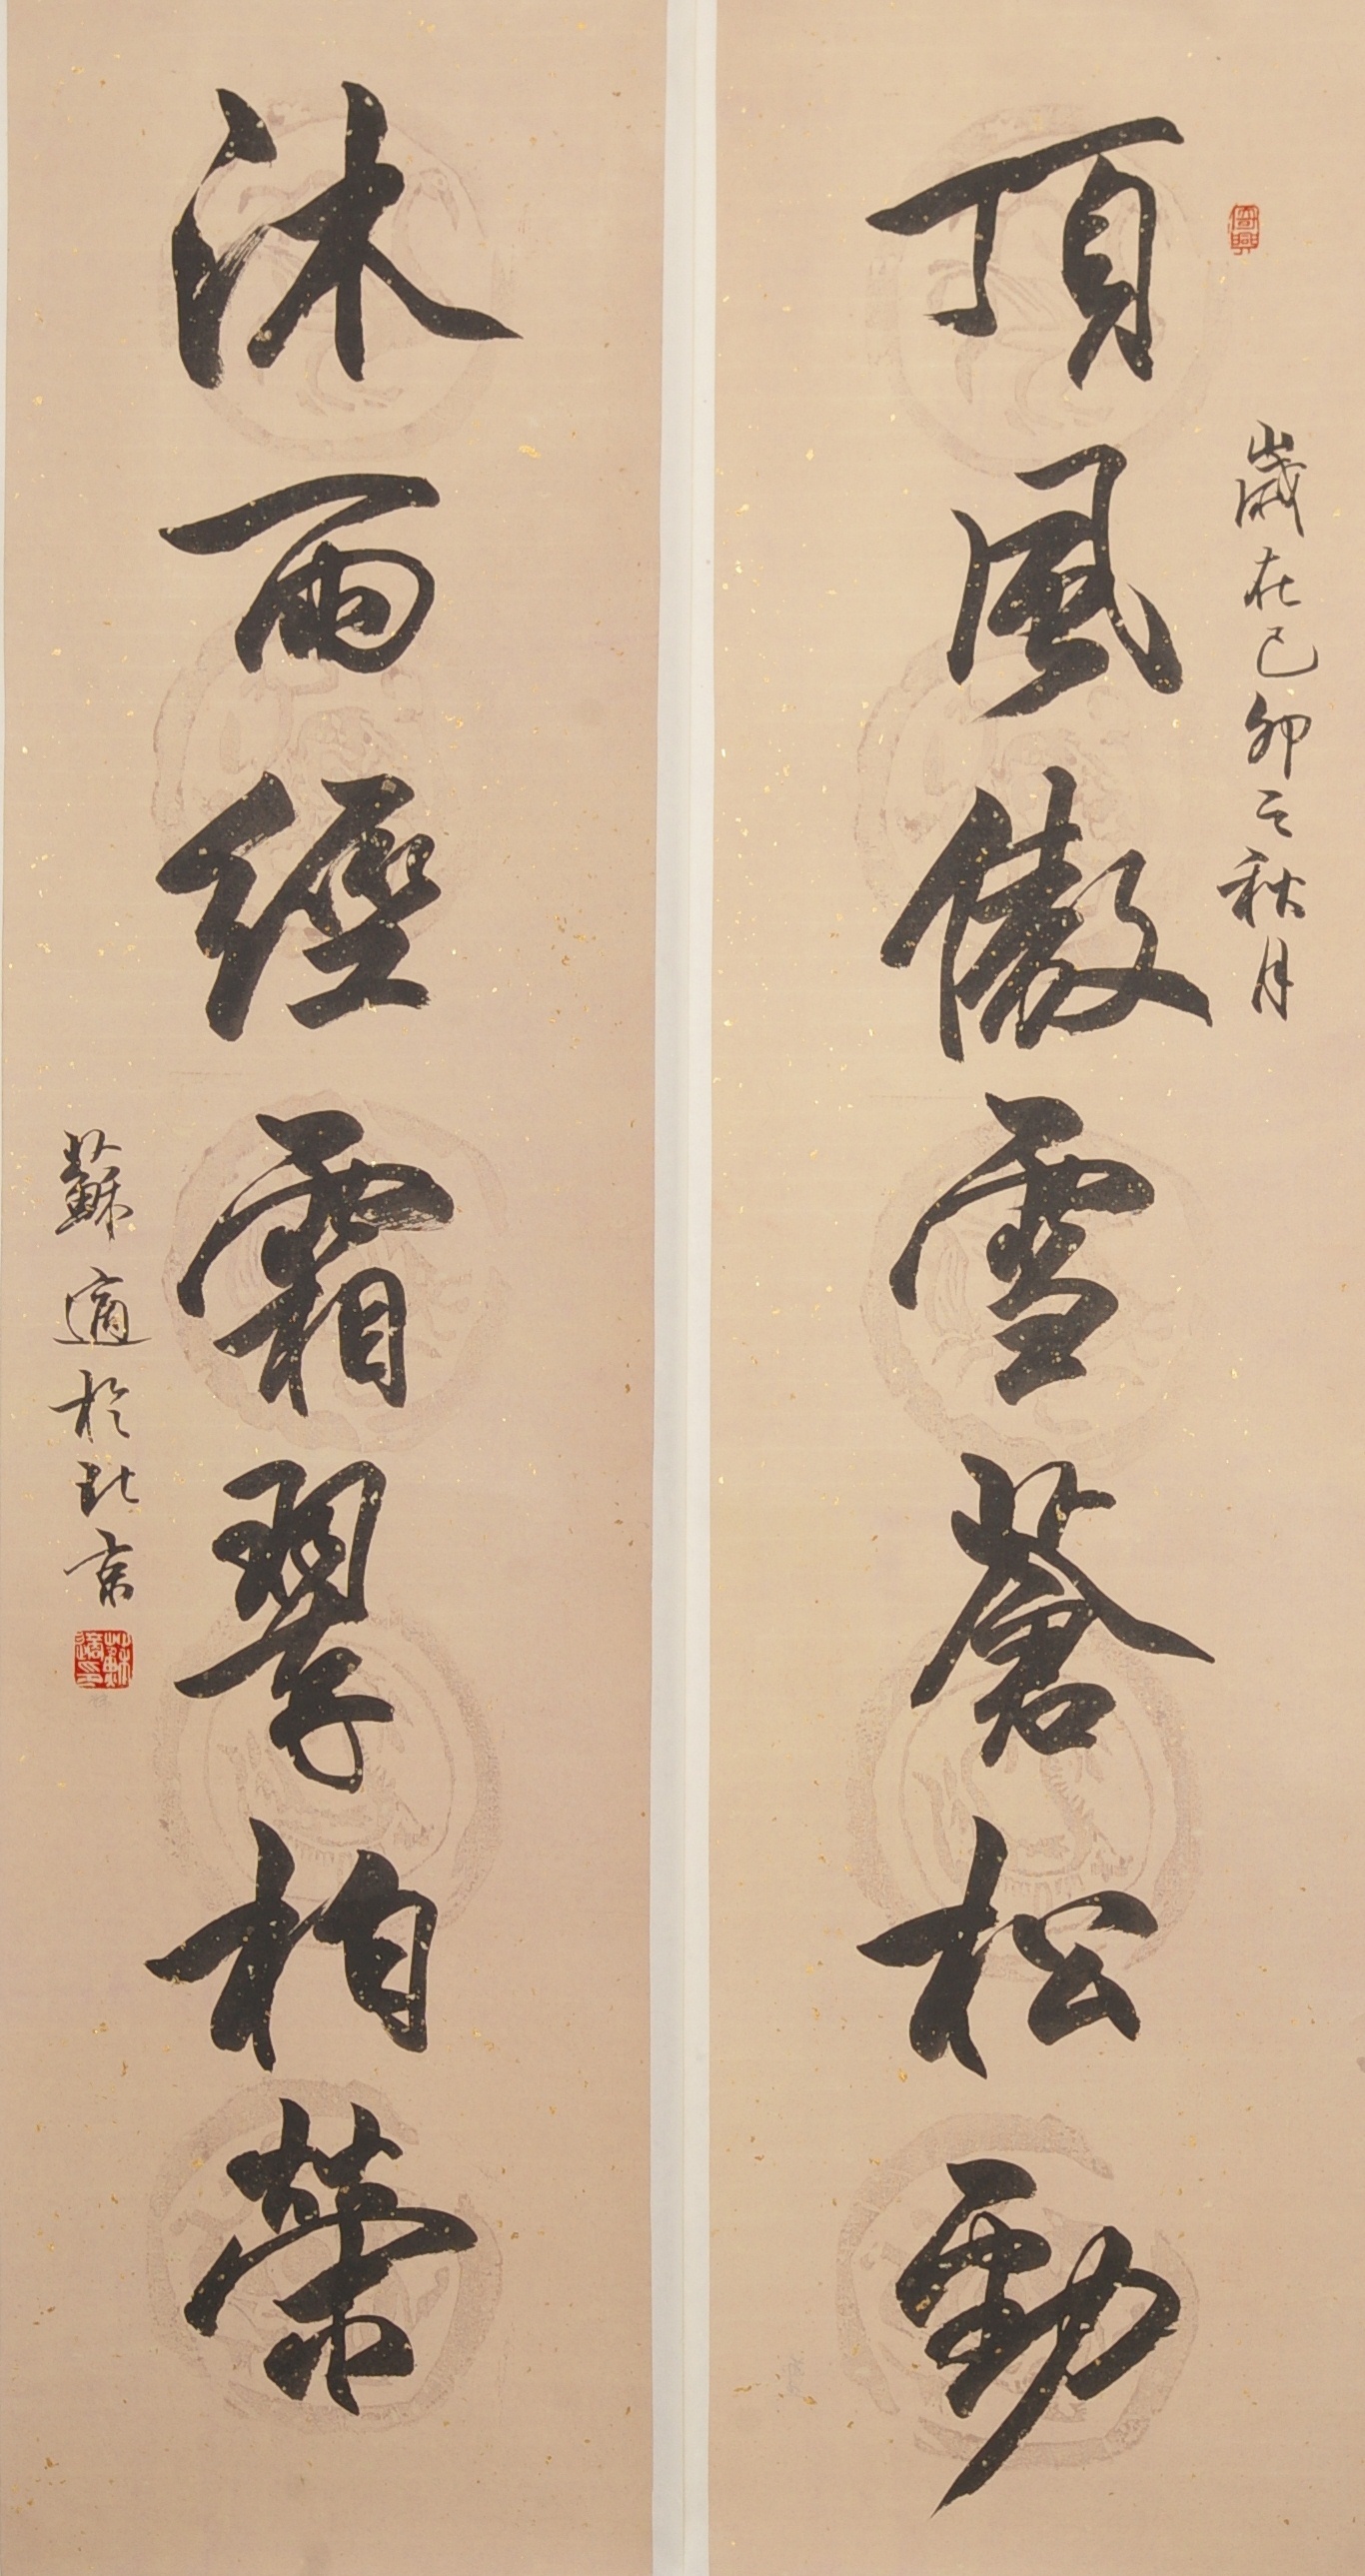 歲在己卯之秋月
頂風傲雪蒼松勁
沐雨經霜翠柏榮
蘇適於北京
蘇適印